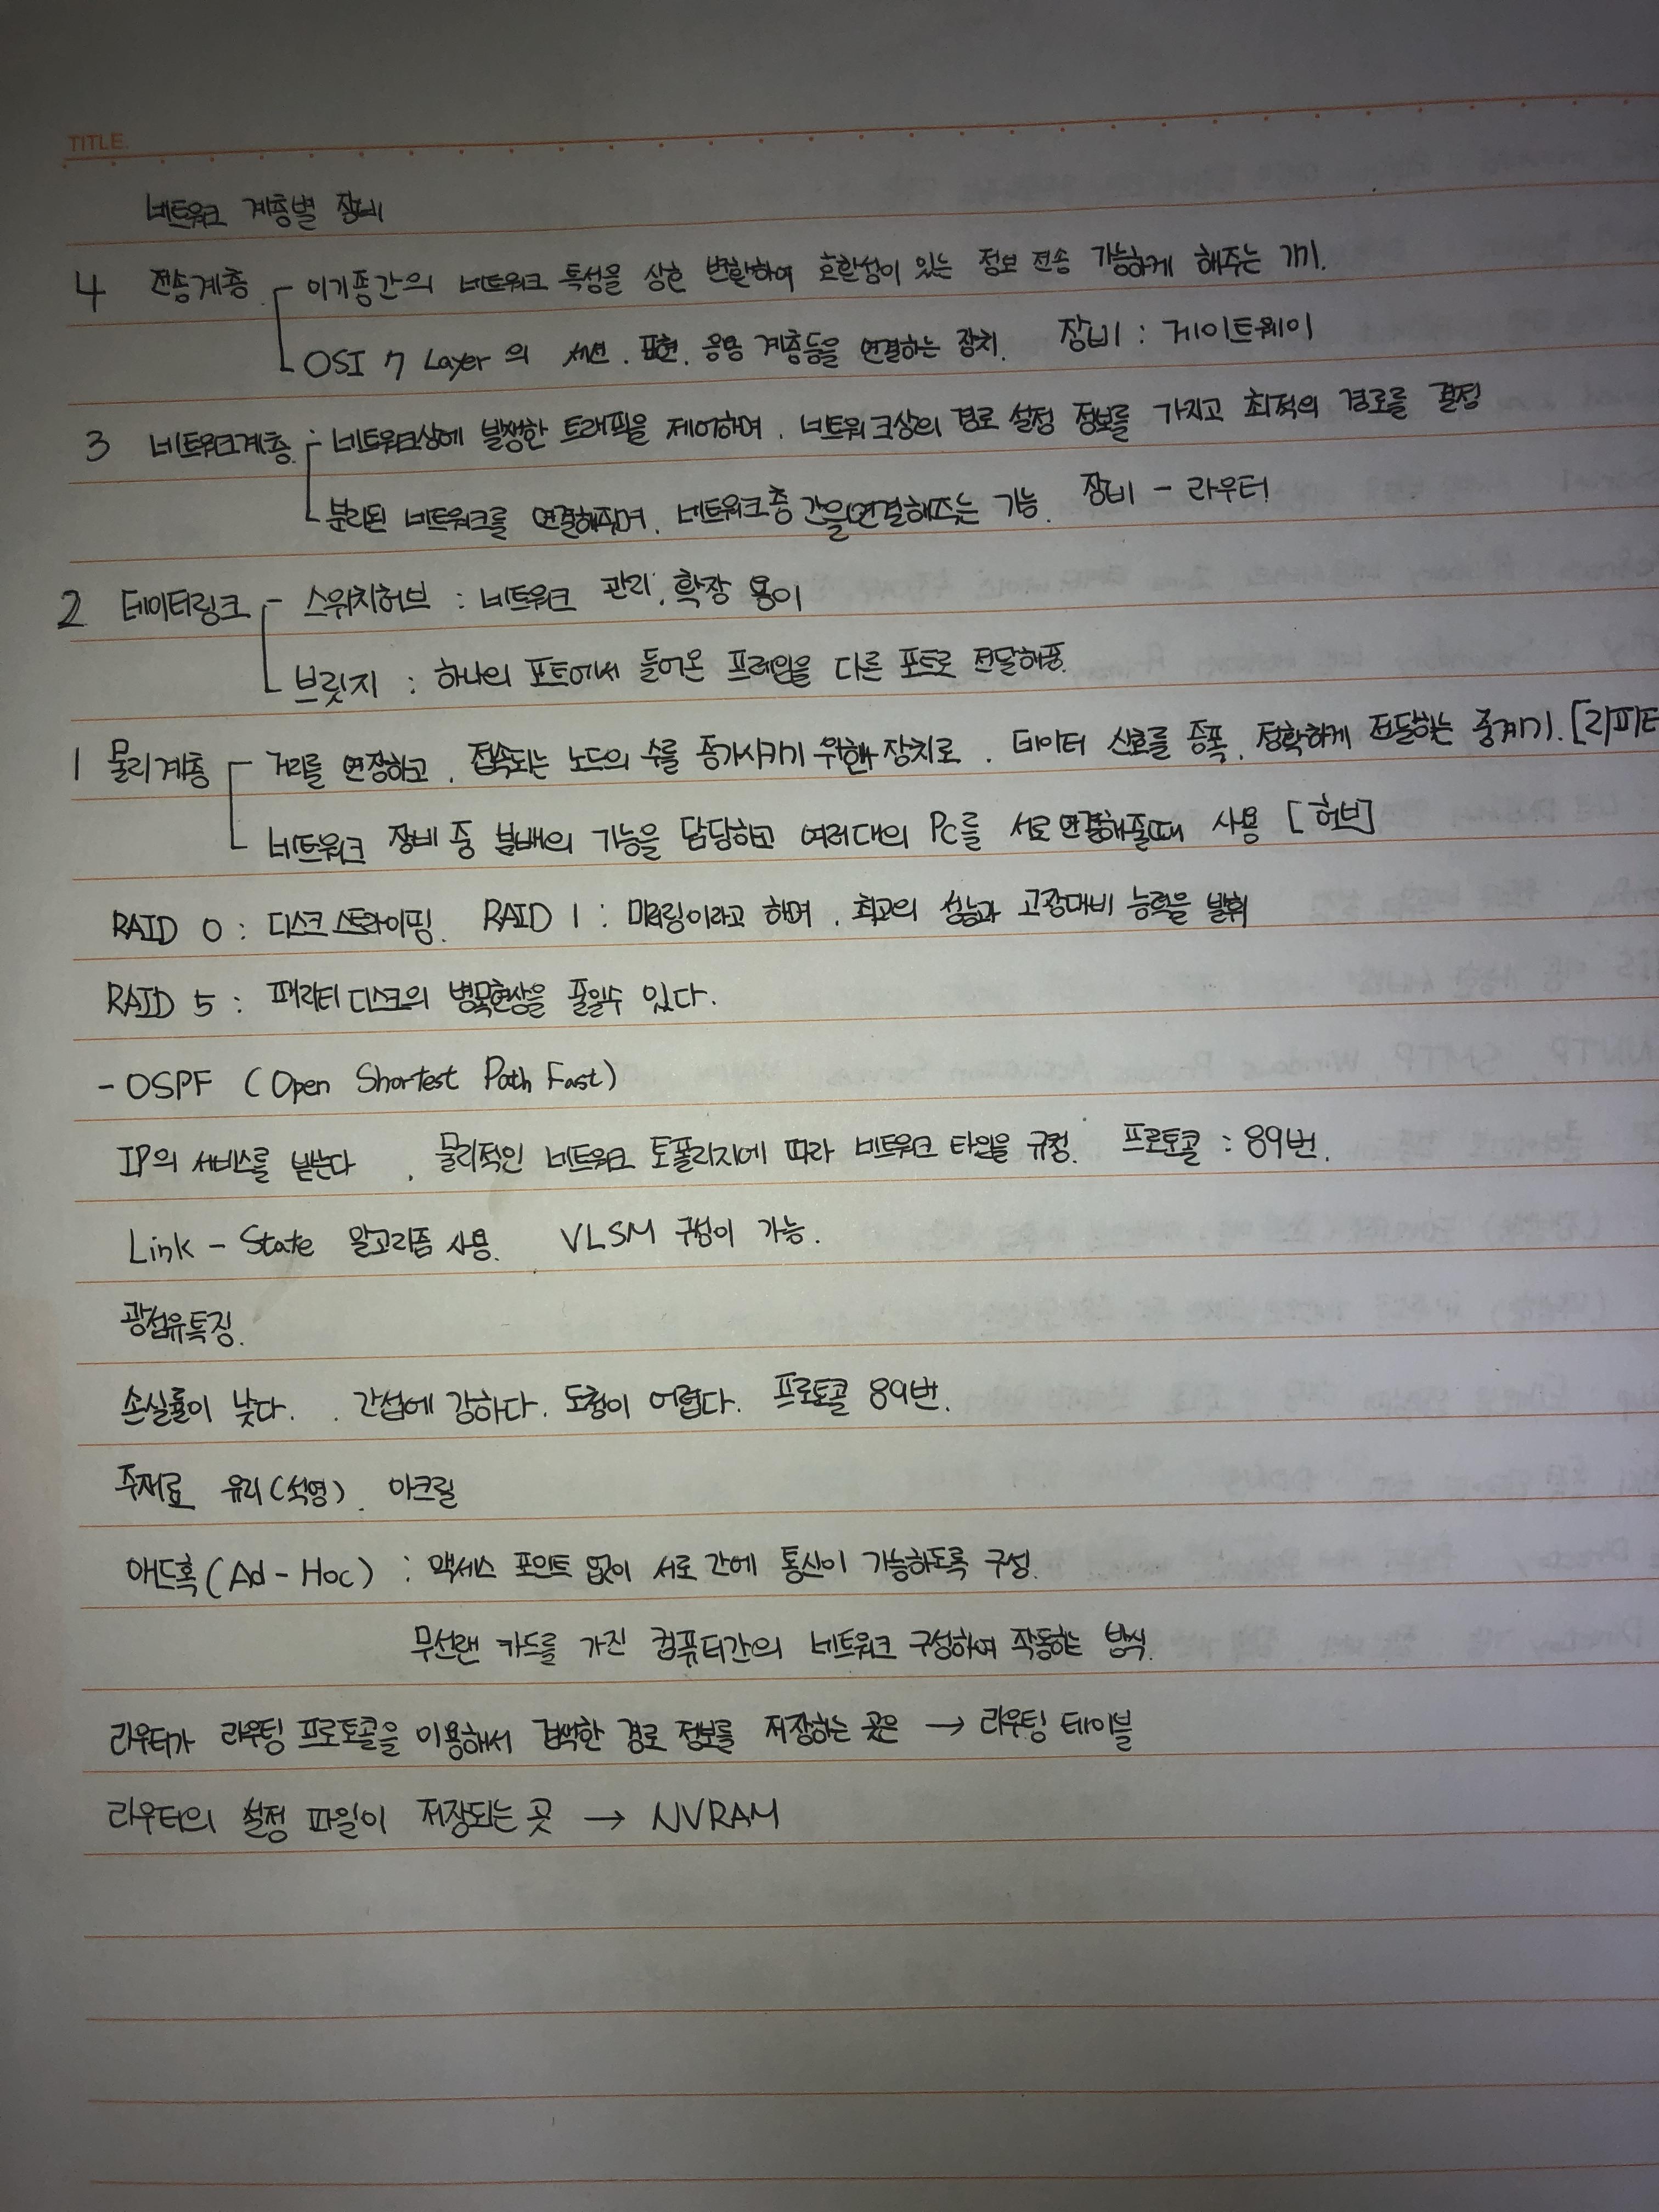 TITLE.
네트워크 계층별 장비
4 전송계층 - 이기종간의 네트워크 특성을 상호 변환하여 호환성이 있는 정보 전송 가능하게 해주는 기기.
OSI 7 Layer 의 세션. 표현. 응용 계층등을 연결하는 장치. 장비 : 게이트웨이
3 네트워크계층. - 네트워크상에 발생한 트래픽을 제어하며. 네트워크상의 경로 설정 정보를 가지고 최적의 경로를 결정
분리된 네트워크를 연결해주며. 네트워크층 간을 연결해주는 기능. 장비 - 라우터
2 데이터링크 - 스위치허브 : 네트워크 관리. 확장 용이
브릿지 : 하나의 포트에서 들어온 프레임을 다른 포트로 전달해줌.
1 물리계층 - 거리를 연장하고. 접속되는 노드의 수를 증가시키기 위한 장치로. 데이터 신호를 증폭. 정확하게 전달하는 중계기. [리피터
네트워크 장비 중 분배의 기능을 담당하고 여러대의 PC를 서로 연결해줄때 사용 [허브]
RAID 0 : 디스크 스트라이핑. RAID 1 : 미러링이라고 하며. 최고의 성능과 고장대비 능력을 발휘
RAID 5 : 패리티 디스크의 병목현상을 줄일수 있다.
- OSPF (Open Shortest Path Fast)
IP의 서비스를 받는다. 물리적인 네트워크 토폴리지에 따라 네트워크 타입을 규정. 프로토콜 : 89번.
Link - State 알고리즘 사용. VLSM 구성이 가능.
광섬유특징.
손실률이 낮다. . 간섭에 강하다. 도청이 어렵다. 프로토콜 89번.
주재료 유리(석영). 아크릴
애드혹(Ad - Hoc) : 액세스 포인트 없이 서로 간에 통신이 가능하도록 구성.
무선랜 카드를 가진 컴퓨터간의 네트워크 구성하여 작동하는 방식.
라우터가 라우팅 프로토콜을 이용해서 검색한 경로 정보를 저장하는 곳은 → 라우팅 테이블
라우터의 설정 파일이 저장되는 곳 → NVRAM